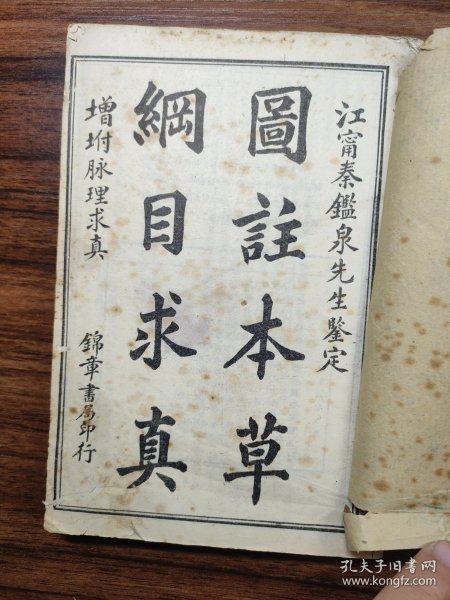 江甯秦鑑泉先生鑒定
圖註本草
綱目求真
增坿脉理求真
錦章書局印行
孔夫子旧书网
www.kongfz.com